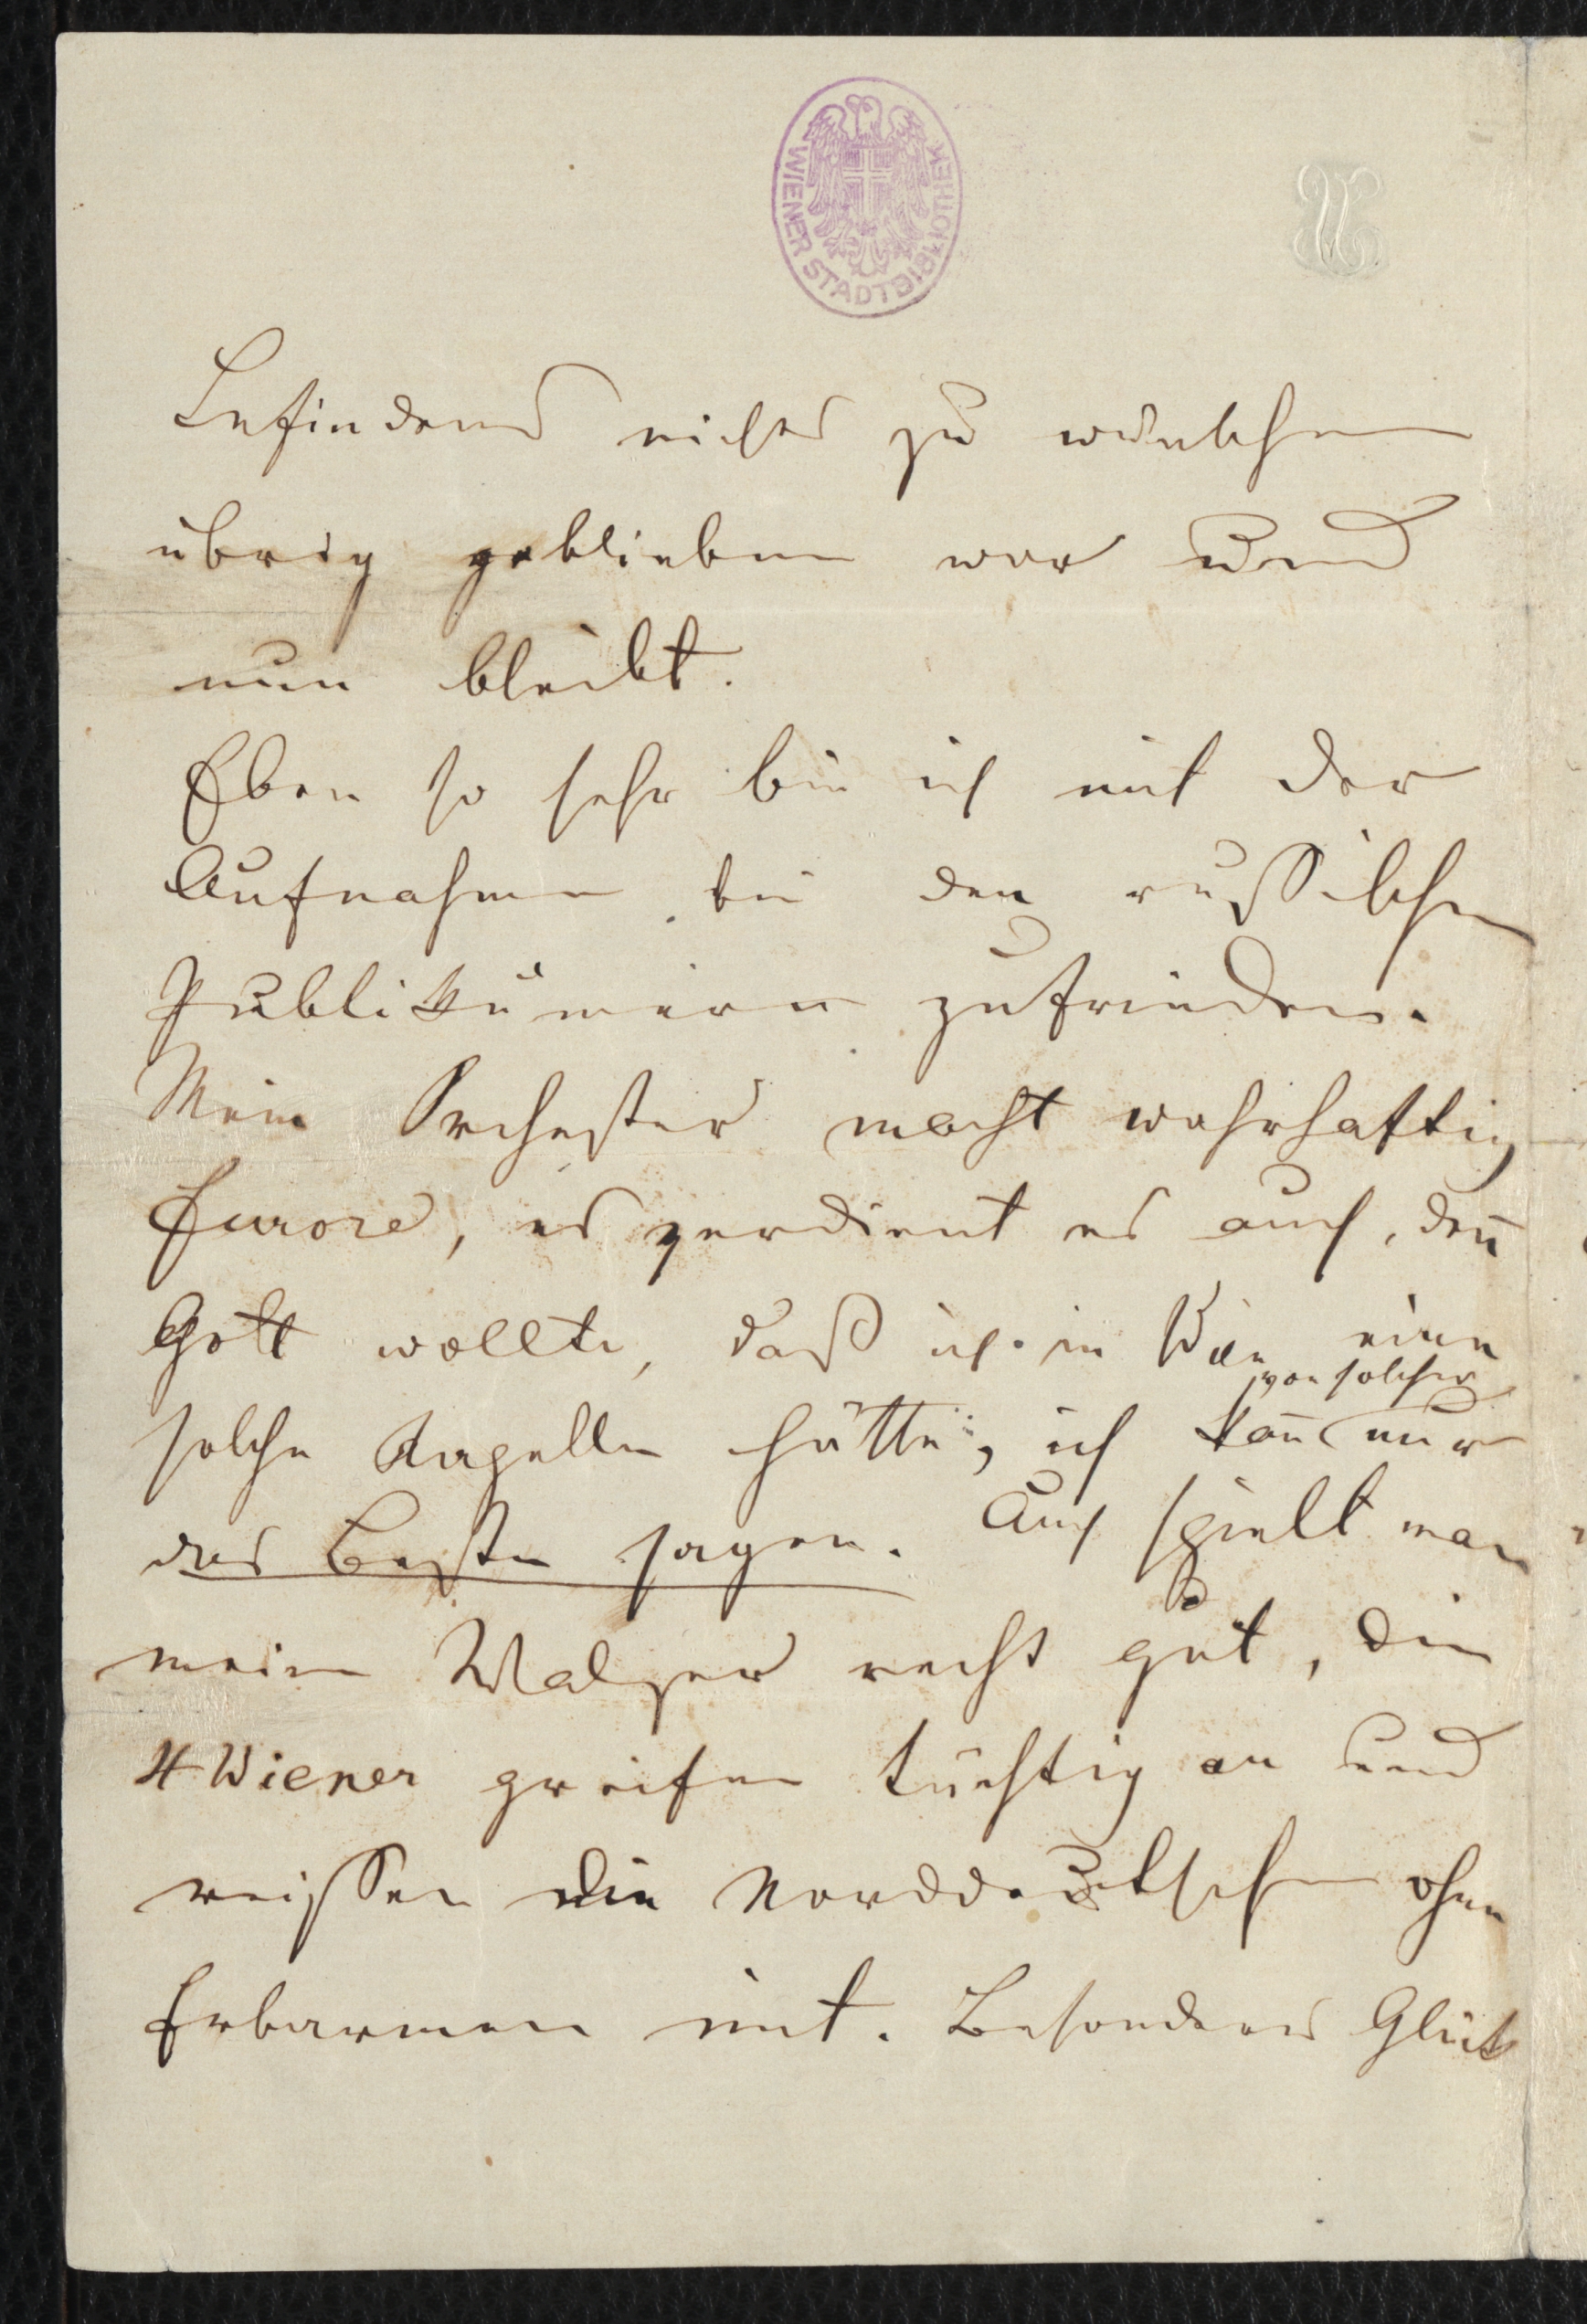 WIENER STADTBIBLIOTHEK
Befindens nichts zu wünschen
übrig geblieben war und
nun bleibt.
Eben so sehr bin ich mit der
Aufnahme bei den russischen
Publikümern zufrieden.
Mein Orchester macht wahrhaftig
Furore, es verdient es auch, deñ
Gott wollte, daß ich in Wien eine
von solcher
solche Kapelle hätte, ich kañ nur
das Beste sagen. Auch spielt man
meine Walzer recht gut, die
4 Wiener greifen tüchtig an und
reissen die Norddeutschen ohne
Erbarmen mit. Besonderes Glück